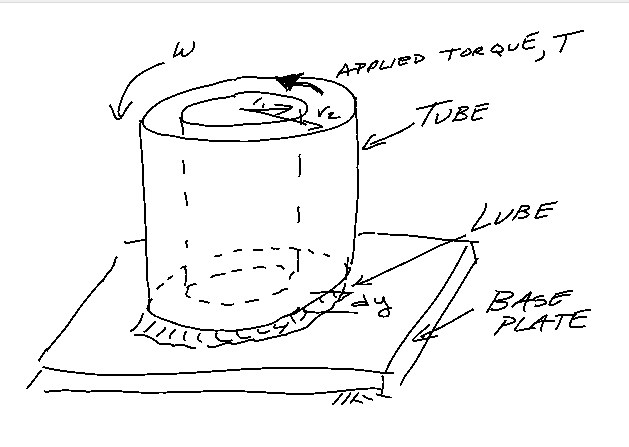 W
APPLIED TORQUE, T
r1
r2
TUBE
LUBE
dy
BASE
PLATE